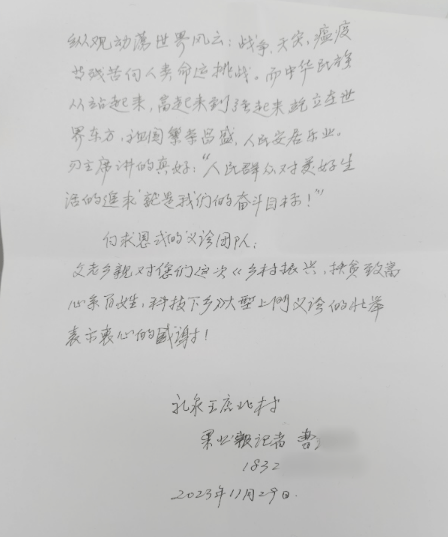 纵观动荡世界风云：战争，天灾，瘟疫
向人类命运挑战。而中华民族
从站起来，富起来到强起来，屹立在世
界东方，祖国繁荣昌盛，人民安居乐业。
习主席讲的真好：“人民群众对美好生
活的追求就是我们的奋斗目标！”
白求恩式的义诊团队人：
父老乡亲对您们这次《乡村振兴，扶贫致富
心系百姓，科技下乡》大型上门义诊的壮举
表示衷心的感谢！
礼泉王店北村
果业报记者 曹
1832
2023年11月29日.